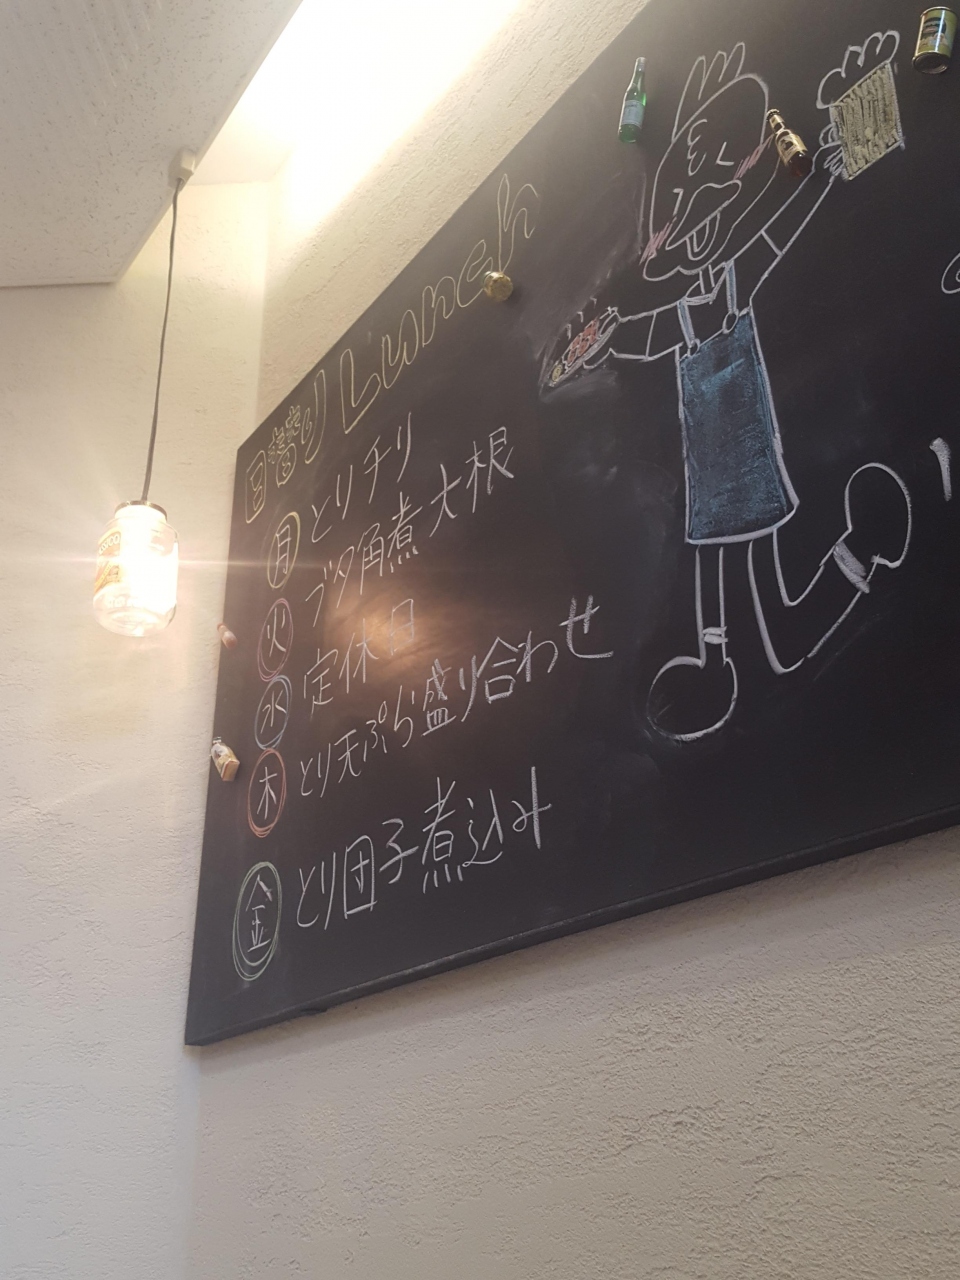 日替り Lunch
月 とりチリ
火 ブタ角煮大根
水 定休日
木 とり天ぷら盛り合わせ
金 とり団子煮込み